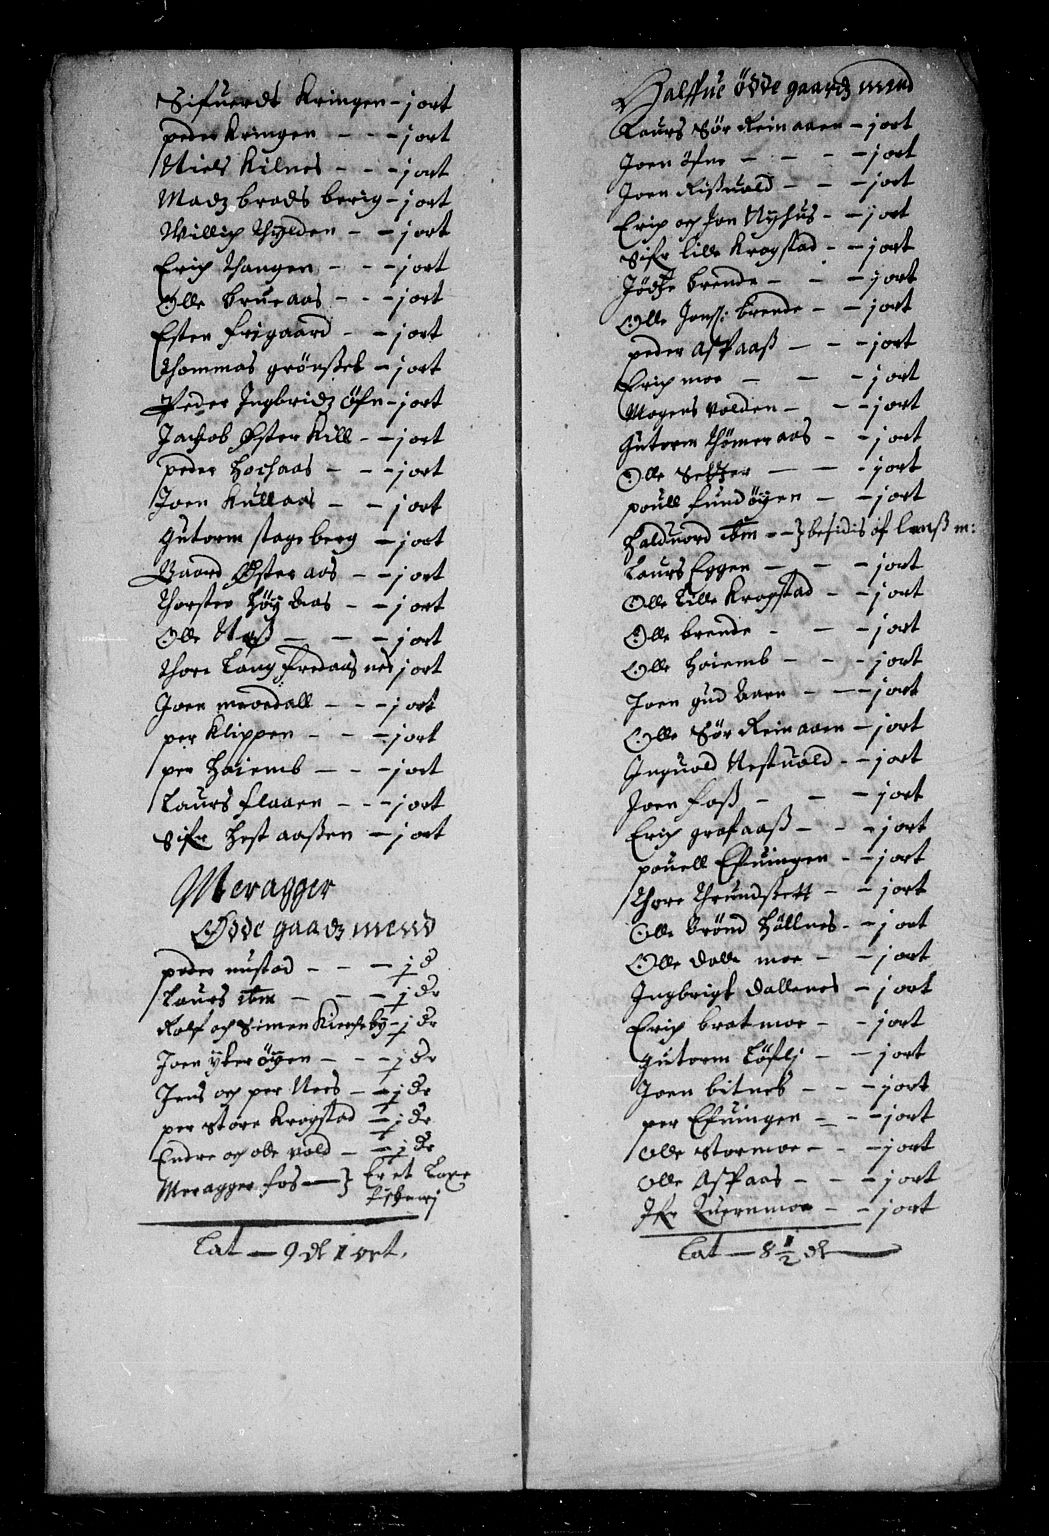 Sifuerdt Kringen – j ort
peder Kringen – – – j ort
Niels Kilnes – – – j ort
Madz brads berig – j ort
Willich Thylden – – j ort
Erich Thangen – – – j ort
Olle brueaas – – – j ort
Esten frigaard – – j ort
Thommas grönsset – j ort
Peder Ingbridz öfn – j ort
Jachob Østerkill – – j ort
peder hochaas – – – j ort
Joen Kullaas – – – j ort
Gutorm stageberg – j ort
Baard Østeraas – – j ort
Thorsten höy Aas – – j ort
Olle Neß – – – j ort
Thore Lang fredaas nes j ort
Joen mevedall – – – j ort
per Klippen – – – j ort
per haiemb – – – j ort
Laurs flaaen – – – j ort
Sifr hest aaßen – j ort
Meragger
Ødde gaadz mend
peder mustad – – – j d
Laurs ibm – – – j dr
Rolf och Simen Kierchby – j dr
Joen yker öyen – – – j dr
Jens och per Nees – – j dr
per store Krogstad – j dr
Endre och olle vold – – j dr
Meragger fos – } Er et Laxe
fischerj
Lat – 9 dl 1 ort.
Halffue ödde gaardz mend
Laurs Sör Reinaaen – j ort
Joen öfne – – – – j ort
Joen Rißuold – – – j ort
Erich och Jon Nyhus – – j ort
Sifr lille Krogstad – – j ort
Jödhe brende – – – j ort
Olle Jonss: brende – – j ort
peder Aspaaß – – – j ort
Erich moe – – – j ort
Mogens volden – – – j ort
Gutorm Thömeraas – – j ort
Olle Setzer – – – j ort
poull sundöyen – – j ort
Halduord ibm – – } besidis af lenß m:
Laurs Eggen – – – j ort
Olle Lille Krogstad – – j ort
Olle brende – – – j ort
Olle haiemb – – – j ort
Joen gud Aaen – – – j ort
Olle Sör Reinaaen – j ort
Inguold Nestuold – – j ort
Joen foß – – – j ort
Erich grafaaß – – – j ort
pouell Efuingen – – j ort
Thore Thrundstett – – j ort
Olle brönd höllnes – – j ort
Olle dalle moe – – – j ort
Ingbrigt dallenes – j ort
Erich brat moe – – j ort
Gutorm Löflj – – j ort
Joen bitnes – – – j ort
per Efuingen – – – j ort
Olle stormoe – – – j ort
Olle Aspaas – – – j ort
Ifr Quernmoe – – j ort
Lat – 8 1/2 dl